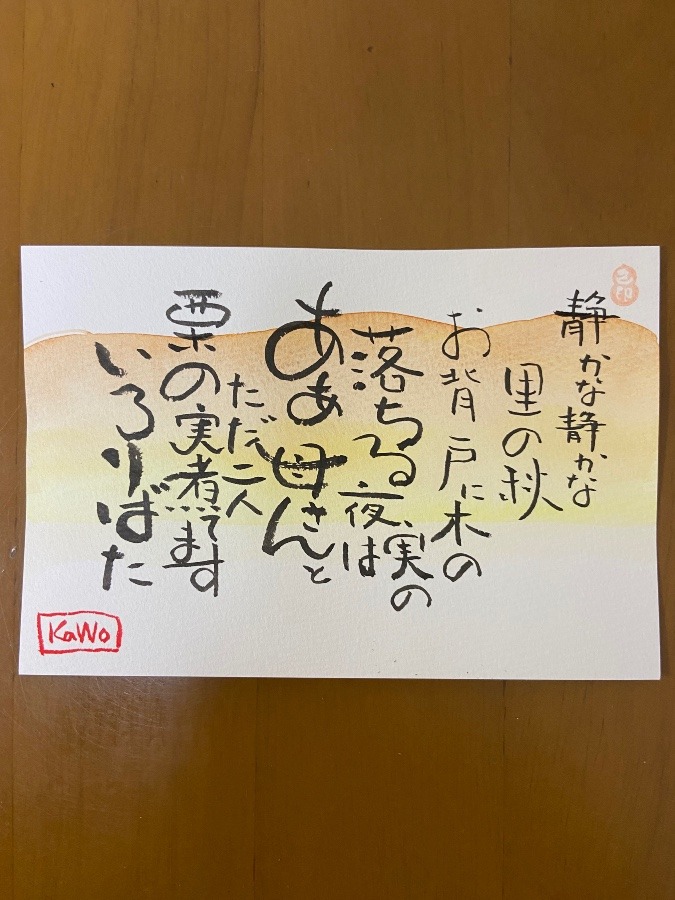 静かな静かな
里の秋
お背戸に木の
実の
落ちる夜は
ああ母さんと
ただ二人
栗の実煮てます
いろりばた
KaWo